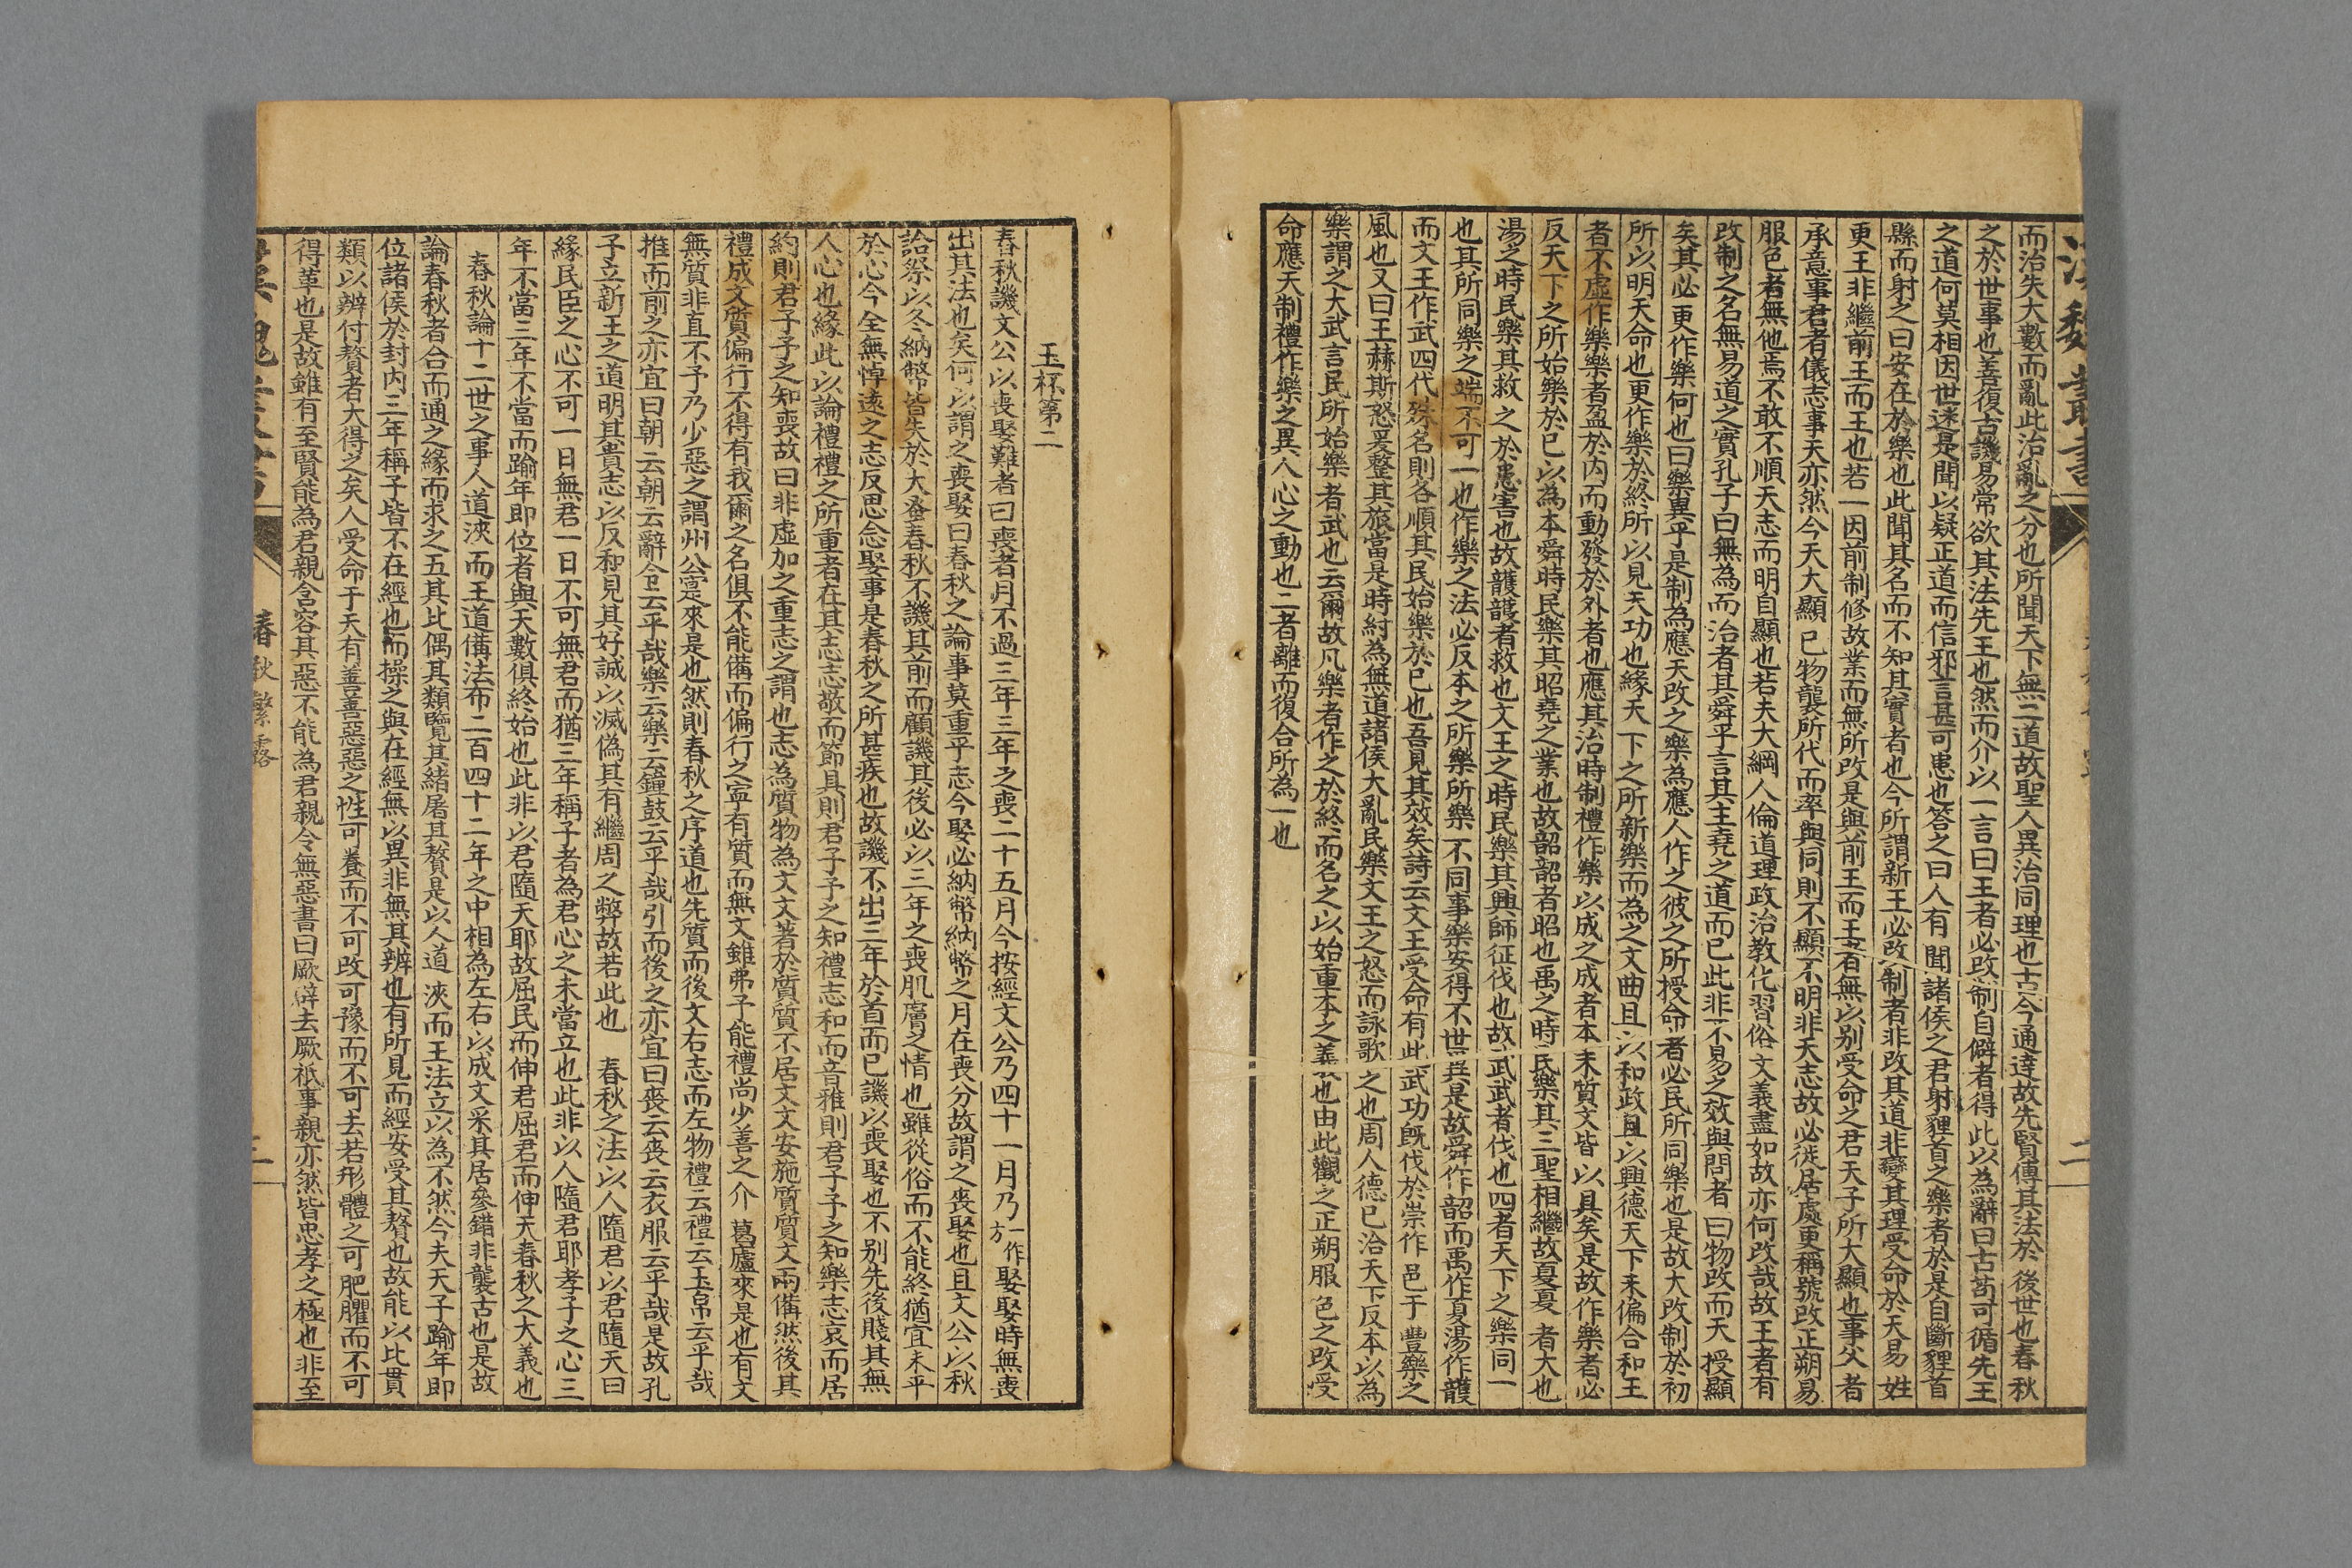 而治失大數而亂此治亂之分也所聞天下無二道故聖人異治同理也古今通達故先賢傳其法於後世也春秋
之於世事也善復古譏易常欲其法先王也然而介以一言曰王者必改制自僻者得此以為辭曰古苟可循先王
之道何莫相因世迷是聞以疑正道而信邪言甚可患也答之曰人有聞諸侯之君射貍首之樂者於是自斷貍首
縣而射之曰安在於樂也此聞其名而不知其實者也今所謂新王必改制者非改其道非變其理受命於天易姓
更王非繼前王而王也若一因前制修故業而無所改是與前王而王者無以别受命之君天子所大顯也事父者
承意事君者儀志事天亦然今天大顯已物襲所代而率與同則不顯不明非天志故必徙居處更稱號改正朔易
服色者無他焉不敢不順天志而明自顯也若夫大綱人倫道理政治教化習俗文義盡如故亦何改哉故王者有
改制之名無易道之實孔子曰無為而治者其舜乎言其主堯之道而已此非不易之效與問者曰物改而天授顯
矣其必更作樂何也曰樂異乎是制為應天改之樂為應人作之彼之所授命者必民所同樂也是故大改制於初
所以明天命也更作樂於終所以見天功也緣天下之所新樂而為之文曲且以和政且以興德天下未偏合和王
者不虛作樂樂者盈於内而動發於外者也應其治時制禮作樂以成之成者本末質文皆以具矣是故作樂者必
反天下之所始樂於已以為本舜時民樂其昭堯之業也故韶韶者昭也禹之時民樂其三聖相繼故夏夏者大也
湯之時民樂其救之於患害也故頀頀者救也文王之時民樂其興師征伐也故武武者伐也四者天下之樂同一
也其所同樂之端不可一也作樂之法必反本之所樂所樂不同事樂安得不世異是故舜作韶而禹作夏湯作頀
而文王作武四代殊名則各順其民始樂於已也吾見其效矣詩云文王受命有此武功旣伐於崇作邑于豐樂之
風也又曰王赫斯怒爰整其旅當是時紂為無道諸侯大亂民樂文王之怒而詠歌之也周人德已洽天下反本以為
樂謂之大武言民所始樂者武也云爾故凡樂者作之於終而名之以始重本之義也由此觀之正朔服色之改受
命應天制禮作樂之異人心之動也二者離而復合所為一也
玉杯第二
春秋譏文公以喪娶難者曰喪者月不過三年三年之喪二十五月今按經文公乃四十一月乃一作方娶娶時無喪
出其法也矣何以謂之喪娶曰春秋之論事莫重乎志今娶必納幣納幣之月在喪分故謂之喪娶也且文公以秋
祫祭以冬納幣皆失於大蚤春秋不譏其前而顧譏其後必以三年之喪肌膚之情也雖從俗而不能終猶宜未平
於心今全無悼遠之志反思念娶事是春秋之所甚疾也故譏不出三年於首而已譏以喪娶也不别先後賤其無
人心也緣此以論禮禮之所重者在其志志敬而節具則君子予之知禮志和而音雅則君子予之知樂志哀而居
約則君子予之知喪故曰非虛加之重志之謂也志為質物為文文著於質質不居文文安施質質文兩備然後其
禮成文質偏行不得有我爾之名俱不能備而偏行之寧有質而無文雖弗予能禮尚少善之介葛廬來是也有文
無質非直不予乃少惡之謂州公寔來是也然則春秋之序道也先質而後文右志而左物禮云禮云玉帛云乎哉
推而前之亦宜曰朝云朝云辭令云乎哉樂云樂云鐘鼓云乎哉引而後之亦宜曰喪云喪云衣服云乎哉是故孔
子立新王之道明其貴志以反和見其好誠以滅偽其有繼周之弊故若此也　春秋之法以人隨君以君隨天曰
緣民臣之心不可一日無君一日不可無君而猶三年稱子者為君心之未當立也此非以人隨君耶孝子之心三
年不當三年不當而踰年即位者與天數俱終始也此非以君隨天耶故屈民而伸君屈君而伸天春秋之大義也
春秋論十二世之事人道浹而王道備法布二百四十二年之中相為左右以成文采其居參錯非襲古也是故
論春秋者合而通之緣而求之五其比偶其類覽其緒屠其贅是以人道浹而王法立以為不然今夫天子踰年即
位諸侯於封内三年稱子皆不在經也而操之與在經無以異非無其辨也有所見而經安受其贅也故能以比貫
類以辨付贅者大得之矣人受命于天有善善惡惡之性可養而不可改可豫而不可去若形體之可肥臞而不可
得革也是故雖有至賢能為君親含容其惡不能為君親令無惡書曰厥辟去厥祇事親亦然皆忠孝之極也非至
春秋繁露